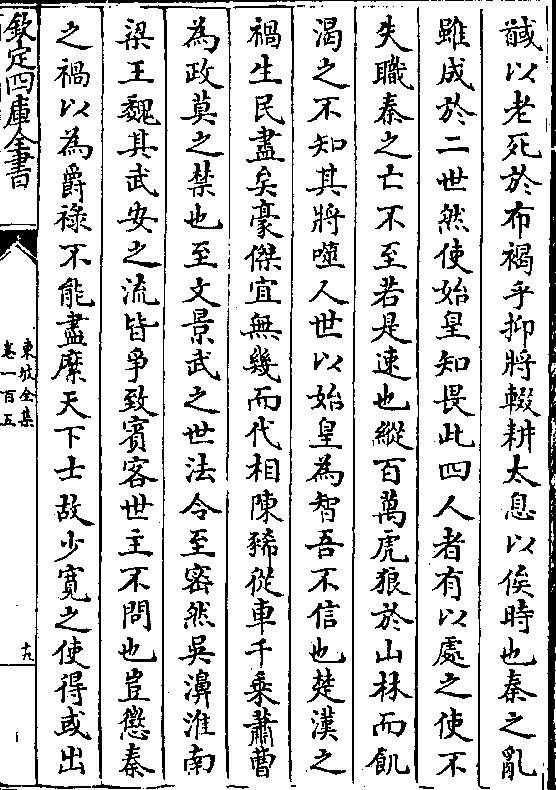 馘以老死於布褐乎抑將輟耕太息以俟時也秦之亂
雖成於二世然使始皇知畏此四人者有以處之使不
失職秦之亡不至若是速也縱百萬虎狼於山林而飢
渴之不知其將噬人世以始皇為智吾不信也楚漢之
禍生民盡矣豪傑宜無幾而代相陳豨從車千乘蕭曹
為政莫之禁也至文景武之世法令至密然吳濞淮南
梁王魏其武安之流皆爭致賓客世主不問也豈懲秦
之禍以為爵祿不能盡縻天下士故少寛之使得或出
欽定四庫全書
東坡全集
卷一百五
十九